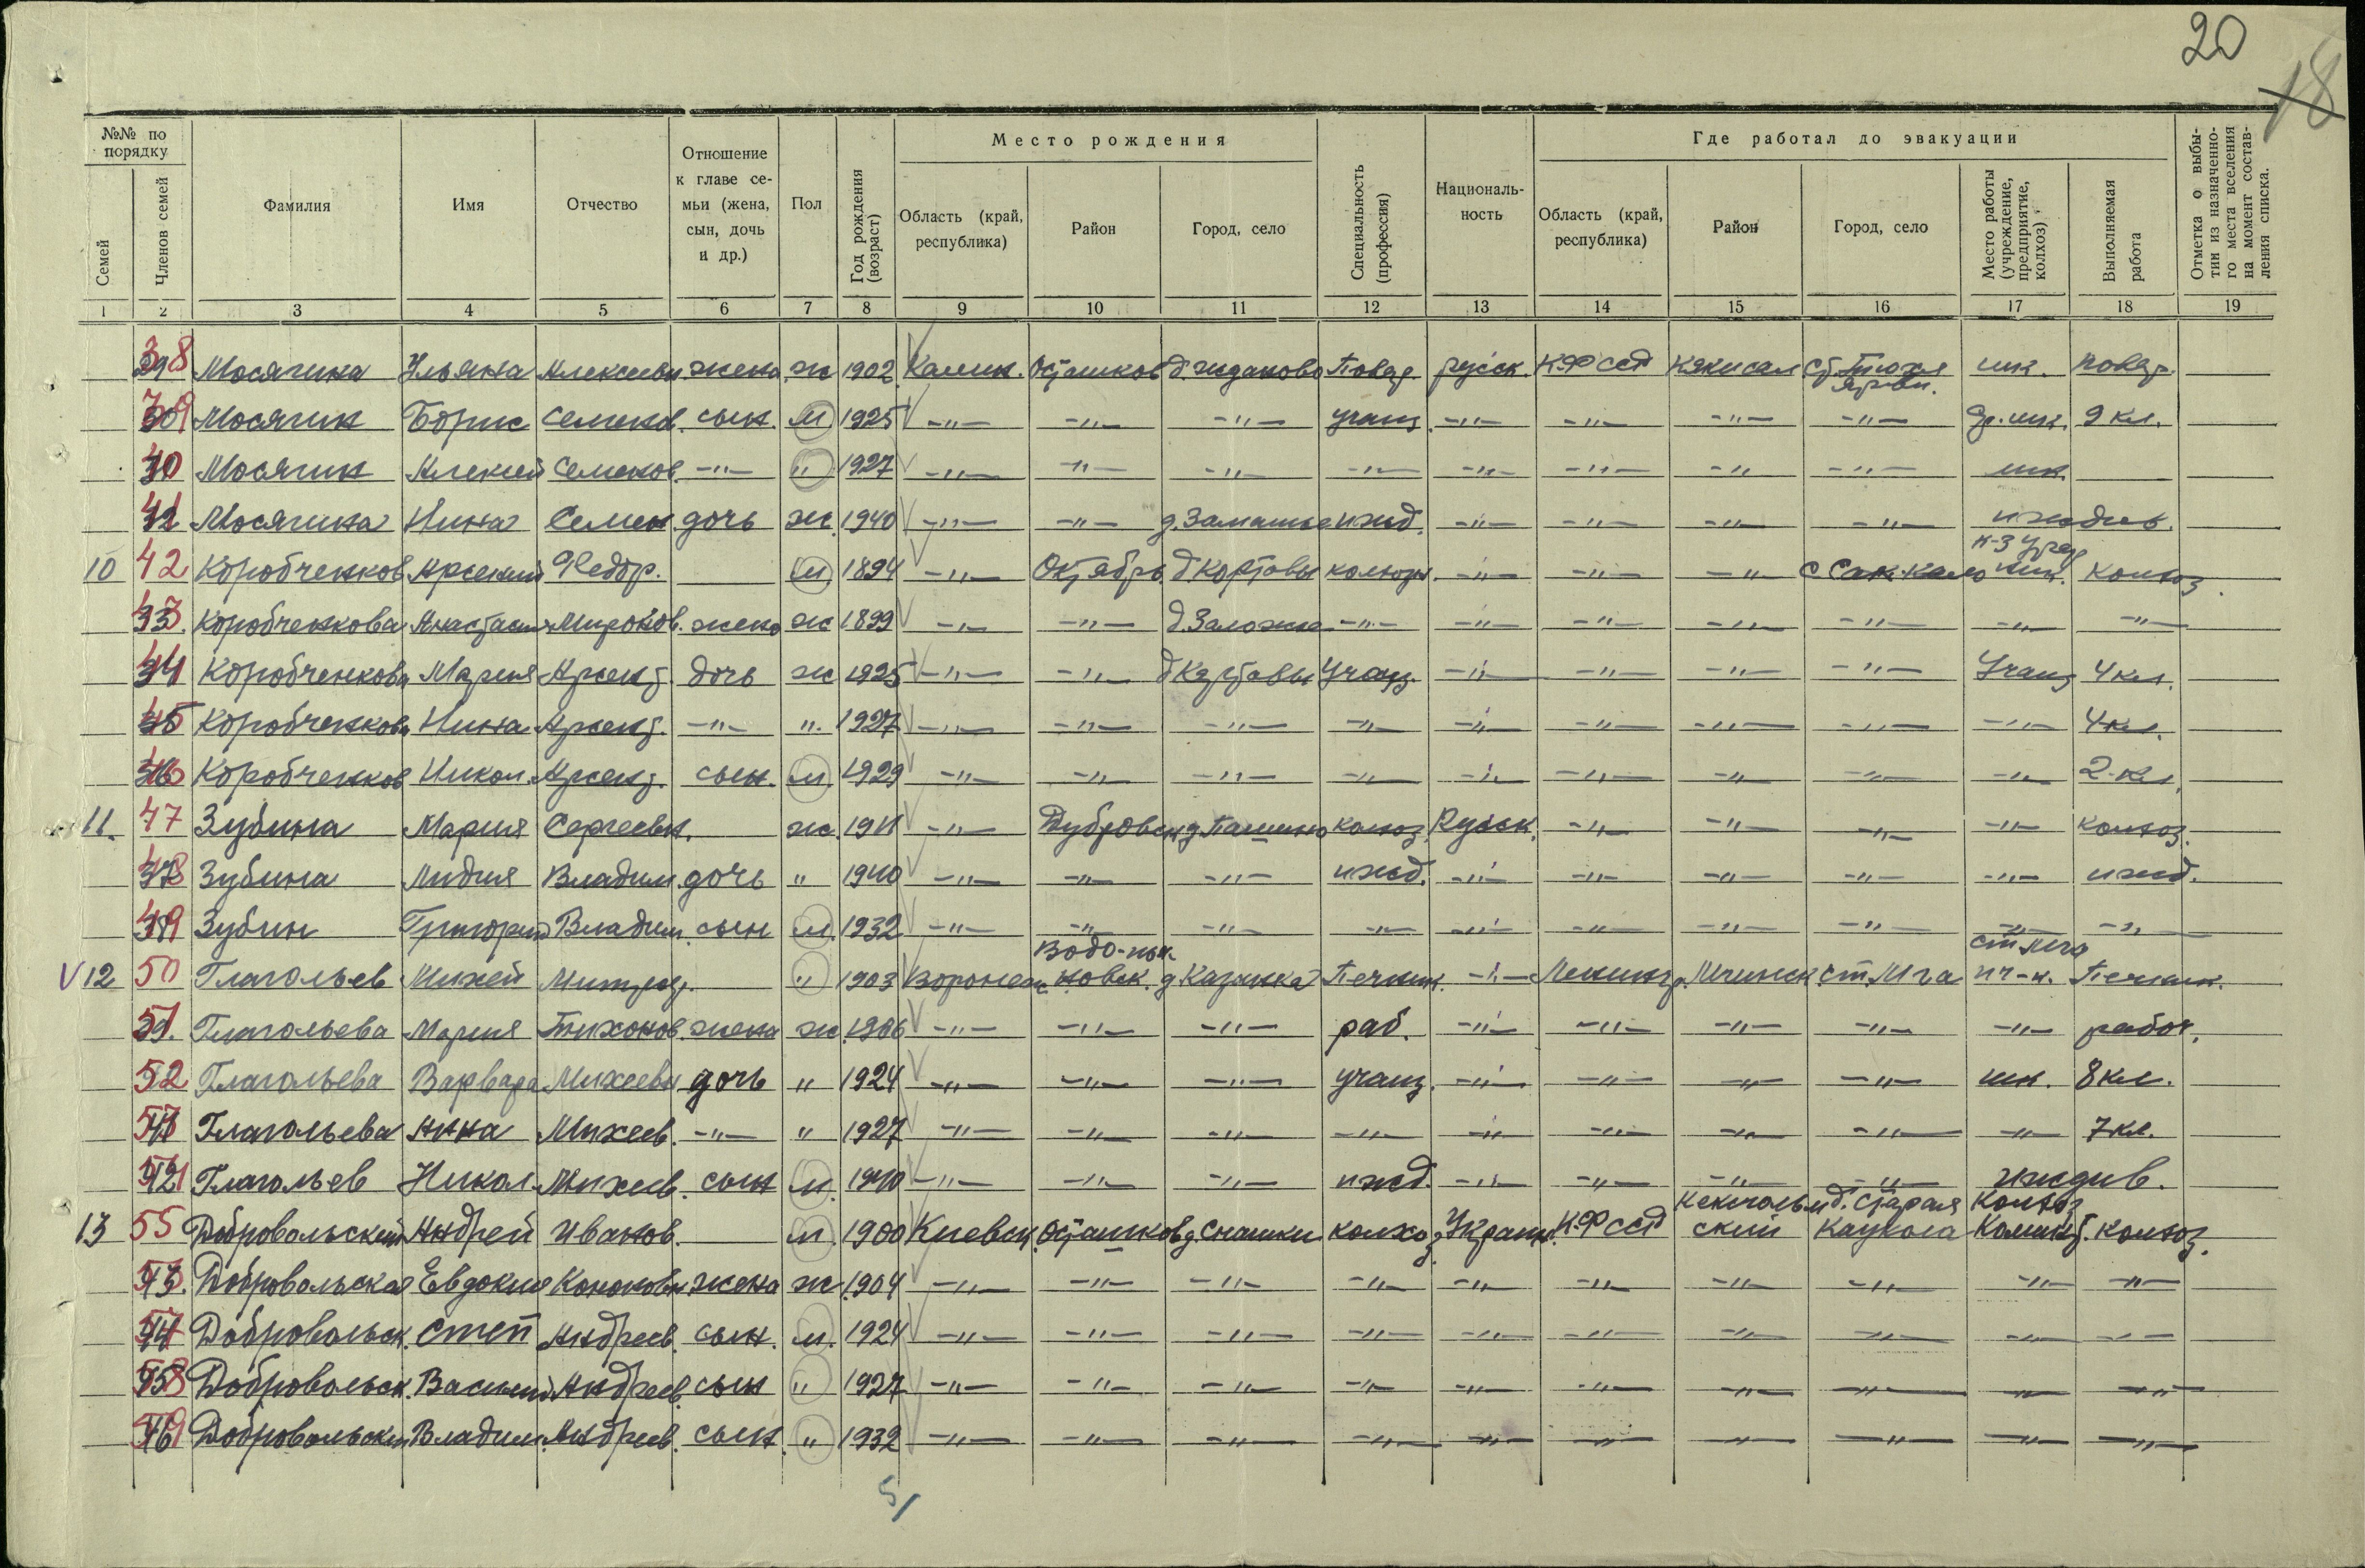 20
18
№№ по порядку | Фамилия | Имя | Отчество | Отношение к главе семьи (жена, сын, дочь и др.) | Пол | Год рождения (возраст) | Место рождения | Специальность (профессия) | Национальность | Где работал до эвакуации | Отметка о выбытии из назначенного места вселения на момент составления списка.
Семей | Членов семей | Область (край, республика) | Район | Город, село | Область (край, республика) | Район | Город, село | Место работы (учреждение, предприятие, колхоз) | Выполняемая работа
1 | 2 | 3 | 4 | 5 | 6 | 7 | 8 | 9 | 10 | 11 | 12 | 13 | 14 | 15 | 16 | 17 | 18 | 19
38 Мосягина Ульяна Алексеевн. жена ж 1902 Калин. Осташков д. Жданово Повар. русск. КФССР Кякисал ст. шк. повар.
39 Мосягин Борис Семенов. сын. м 1925 -"- -"- -"- учащ. -"- -"- -"- -"- ср. шк. 9 кл.
40 Мосягин Алексей Семенов. -"- " 1927 -"- -"- -"- -"- -"- -"- -"- -"- шк.
41 Мосягина Нина Семен. дочь ж. 1940 -"- -"- ижд. -"- -"- -"- -"- иждив.
10 42 Коробченков Арсений Федор. м 1894 -"- Октябрь колхозн. -"- -"- -"- колхоз.
43 33. Коробченкова Анастасия Миронов. жена ж 1899 -"- -"- д. Заложье -"- -"- -"- -"- -"- -"- -"-
44 34 Коробченкова Мария Арсент. дочь ж 1925 -"- -"- учащ. -"- -"- -"- -"- Учащ 4 кл.
45 35 Коробченкова Нина Арсент. -"- ". 1927 -"- -"- -"- -"- -"- -"- -"- -"- -"- 4 кл.
46 36 Коробченков Никол. Арсент. сын. м. 1929 -"- -"- -"- -"- -"- -"- -"- -"- -"- 2-кл.
11. 47 Зубина Мария Сергеевн. ж. 1911 -"- Дубровск д. Пашино колхоз. Русск. -"- -"- -"- -"- колхоз.
48 37 Зубина Лидия Владим. дочь " 1940 -"- -"- -"- ижд. -"- -"- -"- -"- -"- ижд.
49 38 Зубин Григорий Владим. сын м. 1932 -"- -"- -"- -"- -"- -"- -"- -"- -"- -"-
V 12 50 Глагольев Михей " 1903 Воронеж д Казинка Печник. -"- Ленингр. Мгинск ст. Мга ст Мга Печник.
51. Глагольева Мария Тихонов. жена ж. 1906 -"- -"- -"- раб. -"- -"- -"- -"- -"- рабоч.
52 Глагольева Варвара Михеевн дочь " 1924 -"- -"- -"- учащ. -"- -"- -"- -"- шк. 8 кл.
53 41 Глагольева Анна Михеев. -"- " 1927 -"- -"- -"- -"- -"- -"- -"- -"- -"- 7 кл.
54 42 Глагольев Никол. Михеев. сын м. 1940 -"- -"- -"- ижд. -"- -"- -"- -"- иждив.
13 55 Добровольский Андрей Иванов. м. 1900 Киевск. Осташков колхоз. Украин. К.Ф ССР Кексгольмский д. Старая Каукола колхоз Коминт. колхоз.
43. Добровольская Евдокия Кононовн жена ж. 1904 -"- -"- -"- -"- -"- -"- -"- -"- -"- -"-
57 44 Добровольск. Степ Андреев. сын. м. 1924 -"- -"- -"- -"- -"- -"- -"- -"- -"- -"-
58 45 Добровольск. Василий Андреев. сын " 1927 -"- -"- -"- -"- -"- -"- -"- -"- -"- -"-
59 46 Добровольский Владим. Андреев. сын. " 1932 -"- -"- -"- -"- -"- -"- -"- -"- -"- -"-